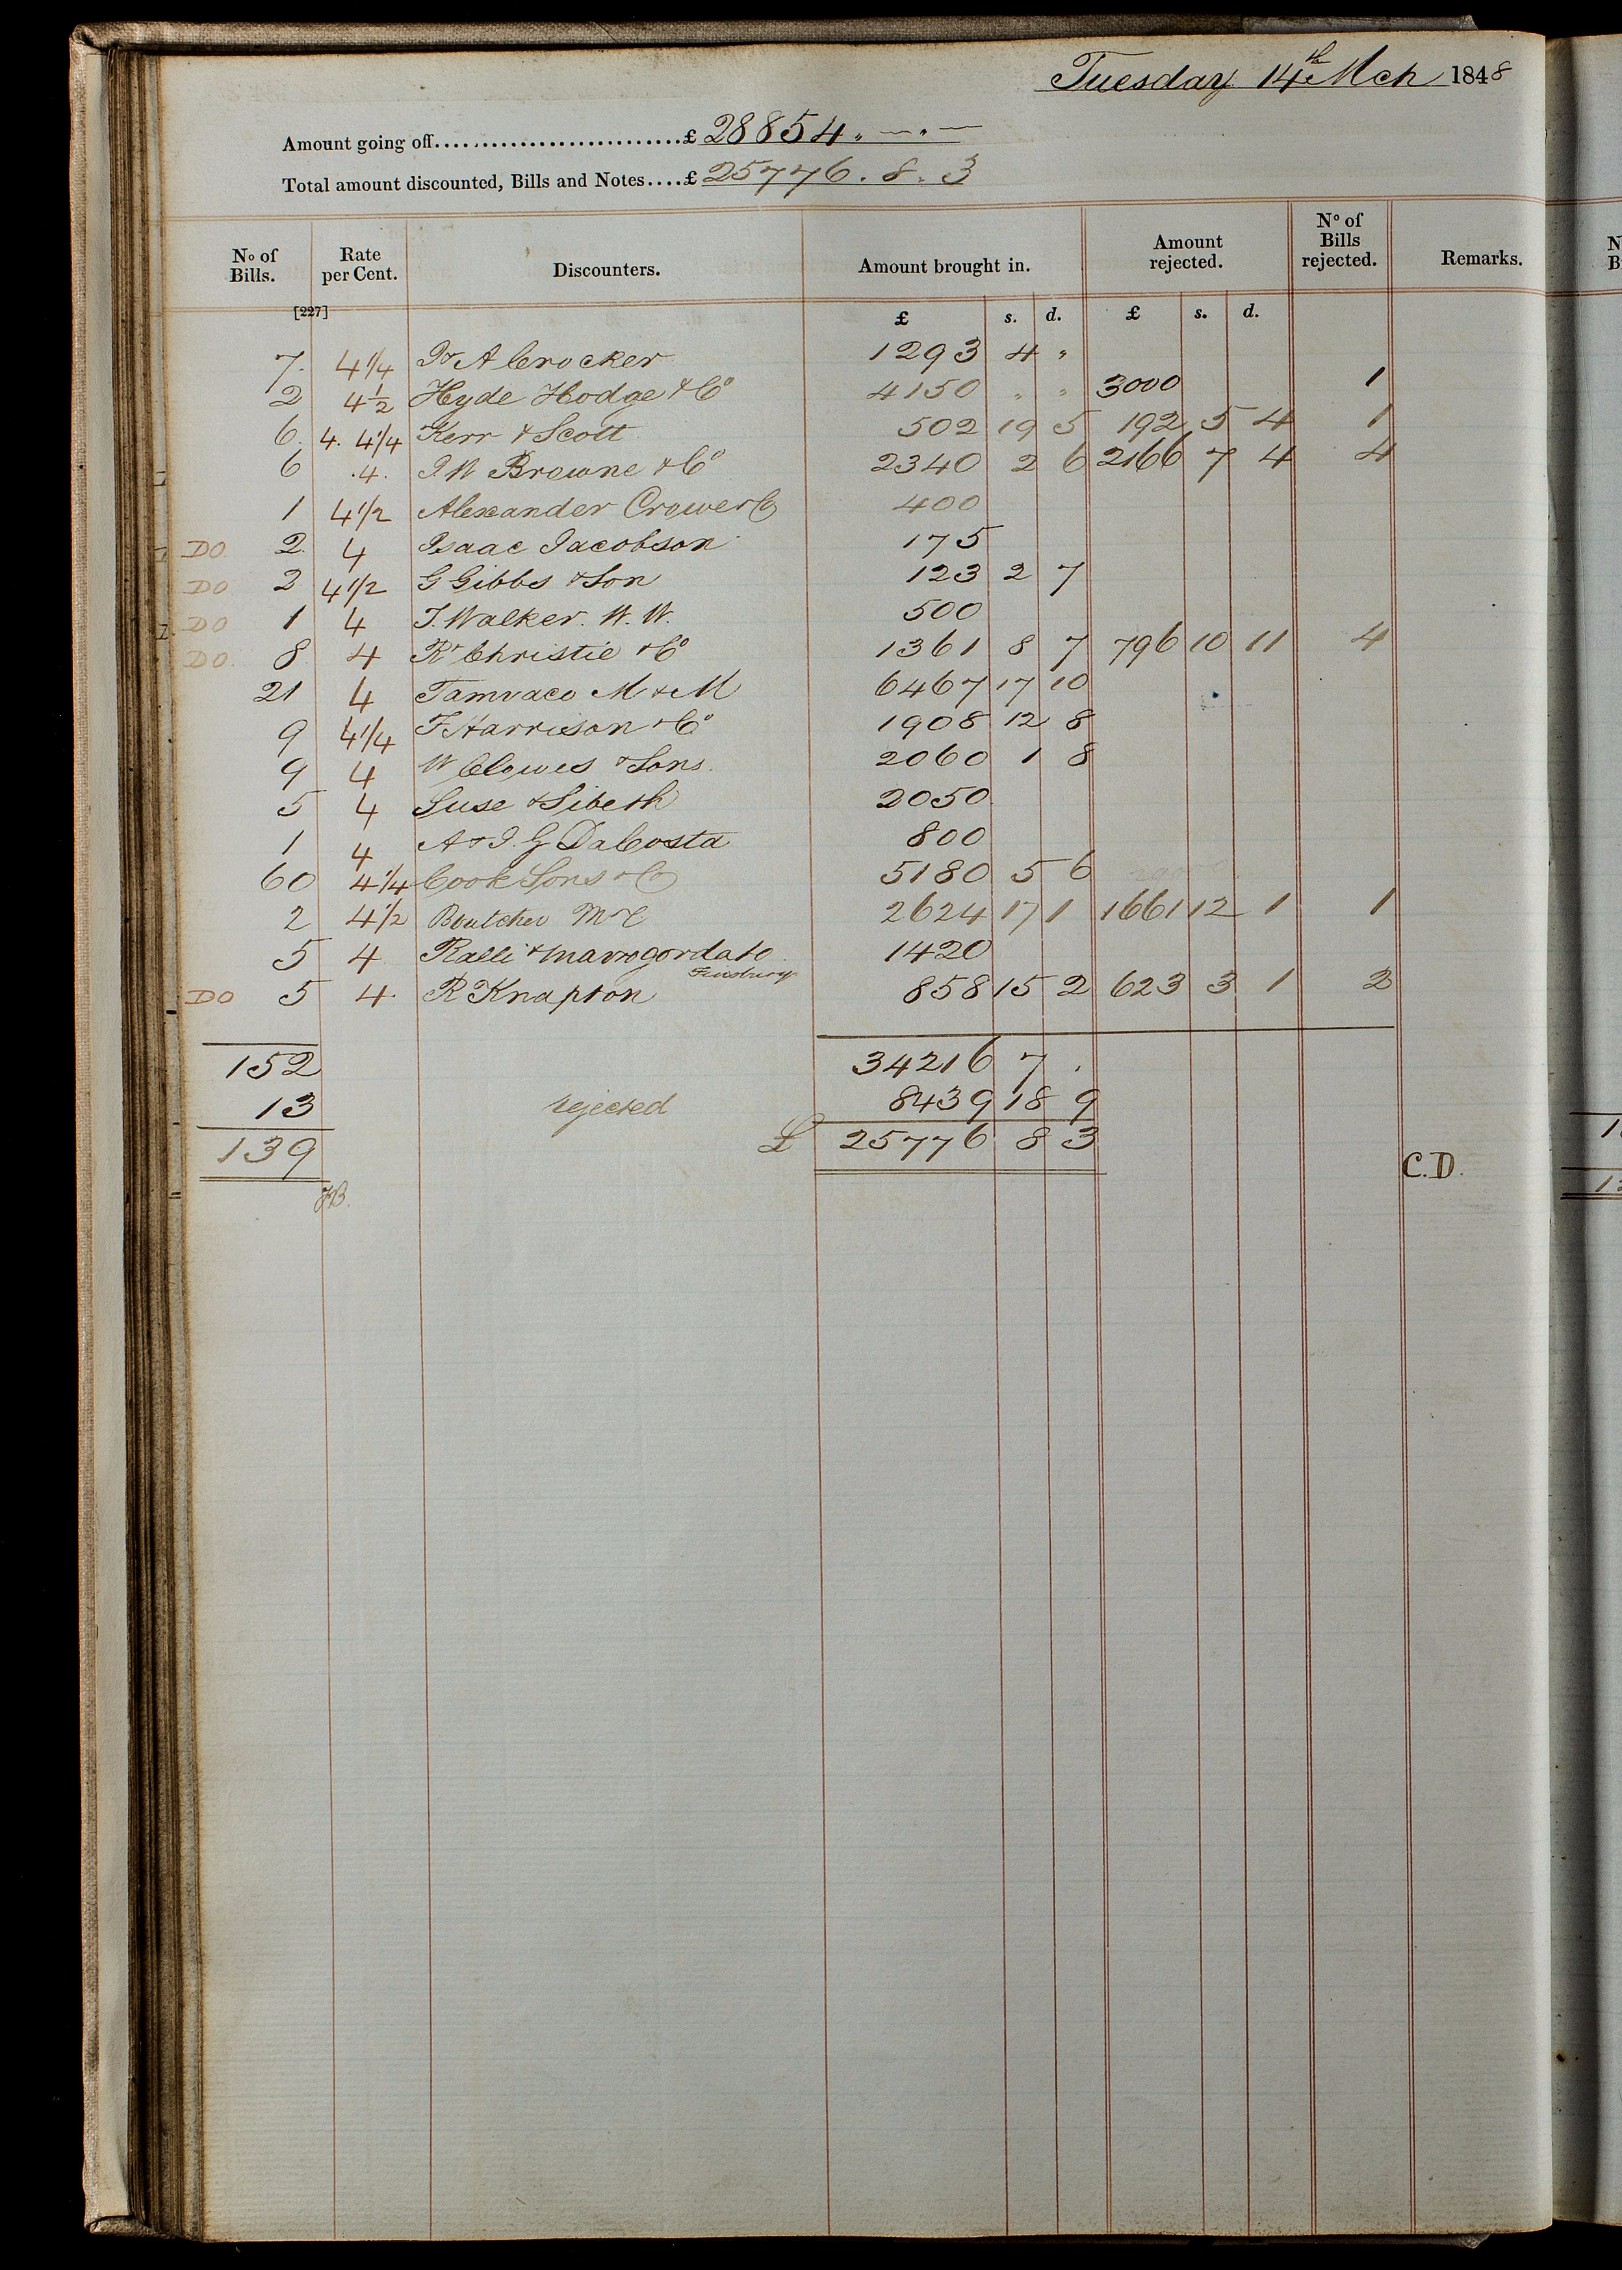 Tuesday 14th Mch 1848
Amount going off...........................£ 28854 „ — „ —
Total amount discounted, Bills and Notes....£ 25776 . 8 . 3
No of Bills. Rate per Cent. Discounters. Amount brought in. Amount rejected. No of Bills rejected. Remarks.
[227] £ s. d. £ s. d.
7. 4 1/4 Jr A Crocker 1293 4 „
2 4 1/2 Hyde Hodge & Co 4150 „ „ 3000 1
6. 4. 4 1/4 Kerr & Scott 502 19 5 192 5 4 1
6 .4. J W Browne & Co 2340 2 6 2166 7 4 4
1 4 1/2 Alexander Crower & Co 400
DO. 2. 4 Isaac Jacobson 175
DO 2 4 1/2 G Gibbs & Son 123 2 7
DO 1 4 T. Walker. W. W. 500
DO. 8 4 R Christie & Co 1361 8 7 796 10 11 4
21 4 Tamvaco M & M 6467 17 10
9 4 1/4 F Harrison & Co 1908 12 8
9 4 W Clowes & Sons. 2060 1 8
5 4 Suse & Sibeth 2050
1 4 A & J. G DaCosta 800
60 4 1/4 Cook Sons & Co 5180 5 6
2 4 1/2 Boutcher M & C 2624 17 1 1661 12 1 1
5 4 Ralli & Mavrogordato Finsbury 1420
DO 5 4. R Knapton 858 15 2 623 3 1 2
152 34216 7 .
13 rejected 8439 18 9
139 £ 25776 8 3
C.D.
JB.